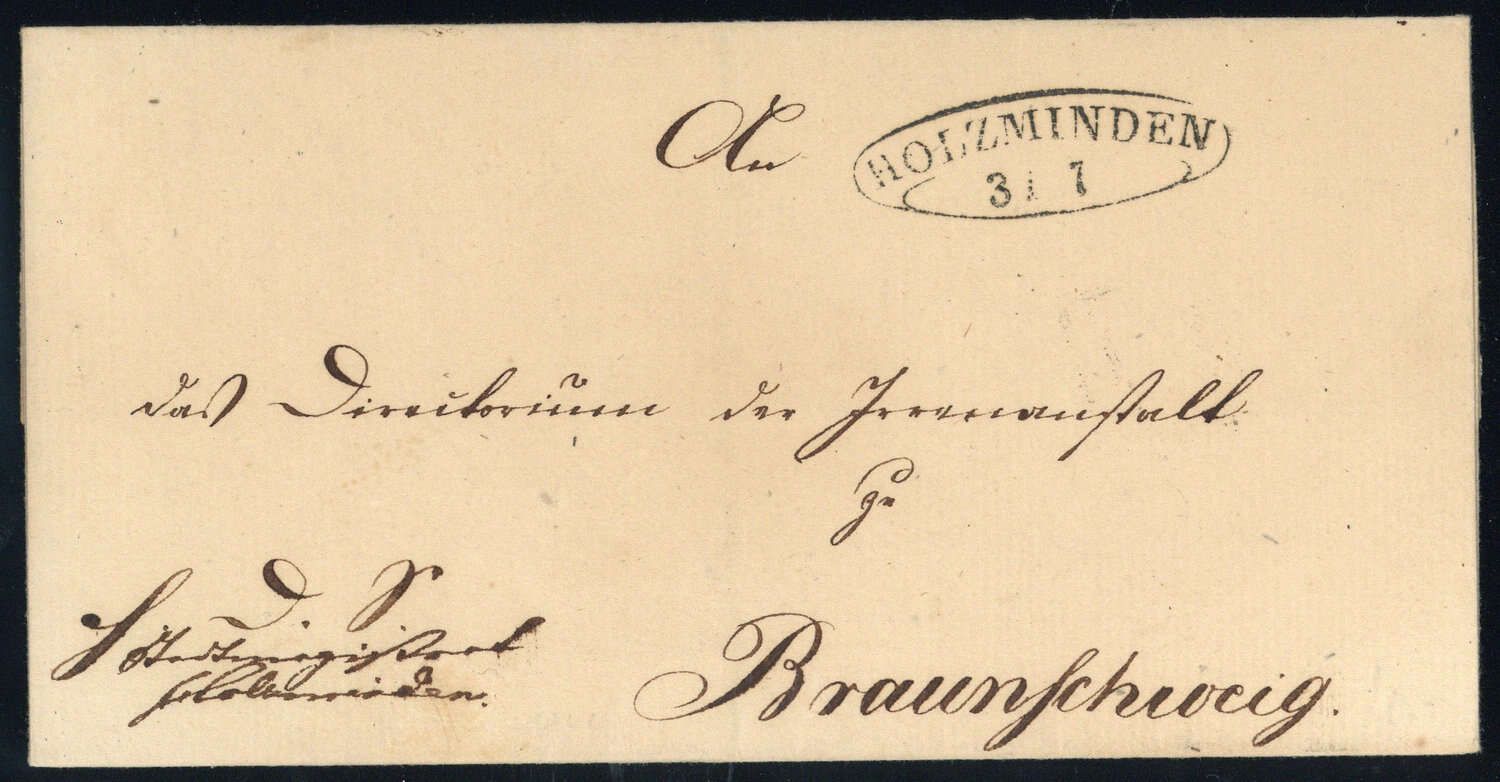 An
HOLZMINDEN
31 7
das Directorium der Irrenanstalt
zu
D. S.
Stadtmagistrat
Holzminden.
Braunschweig.